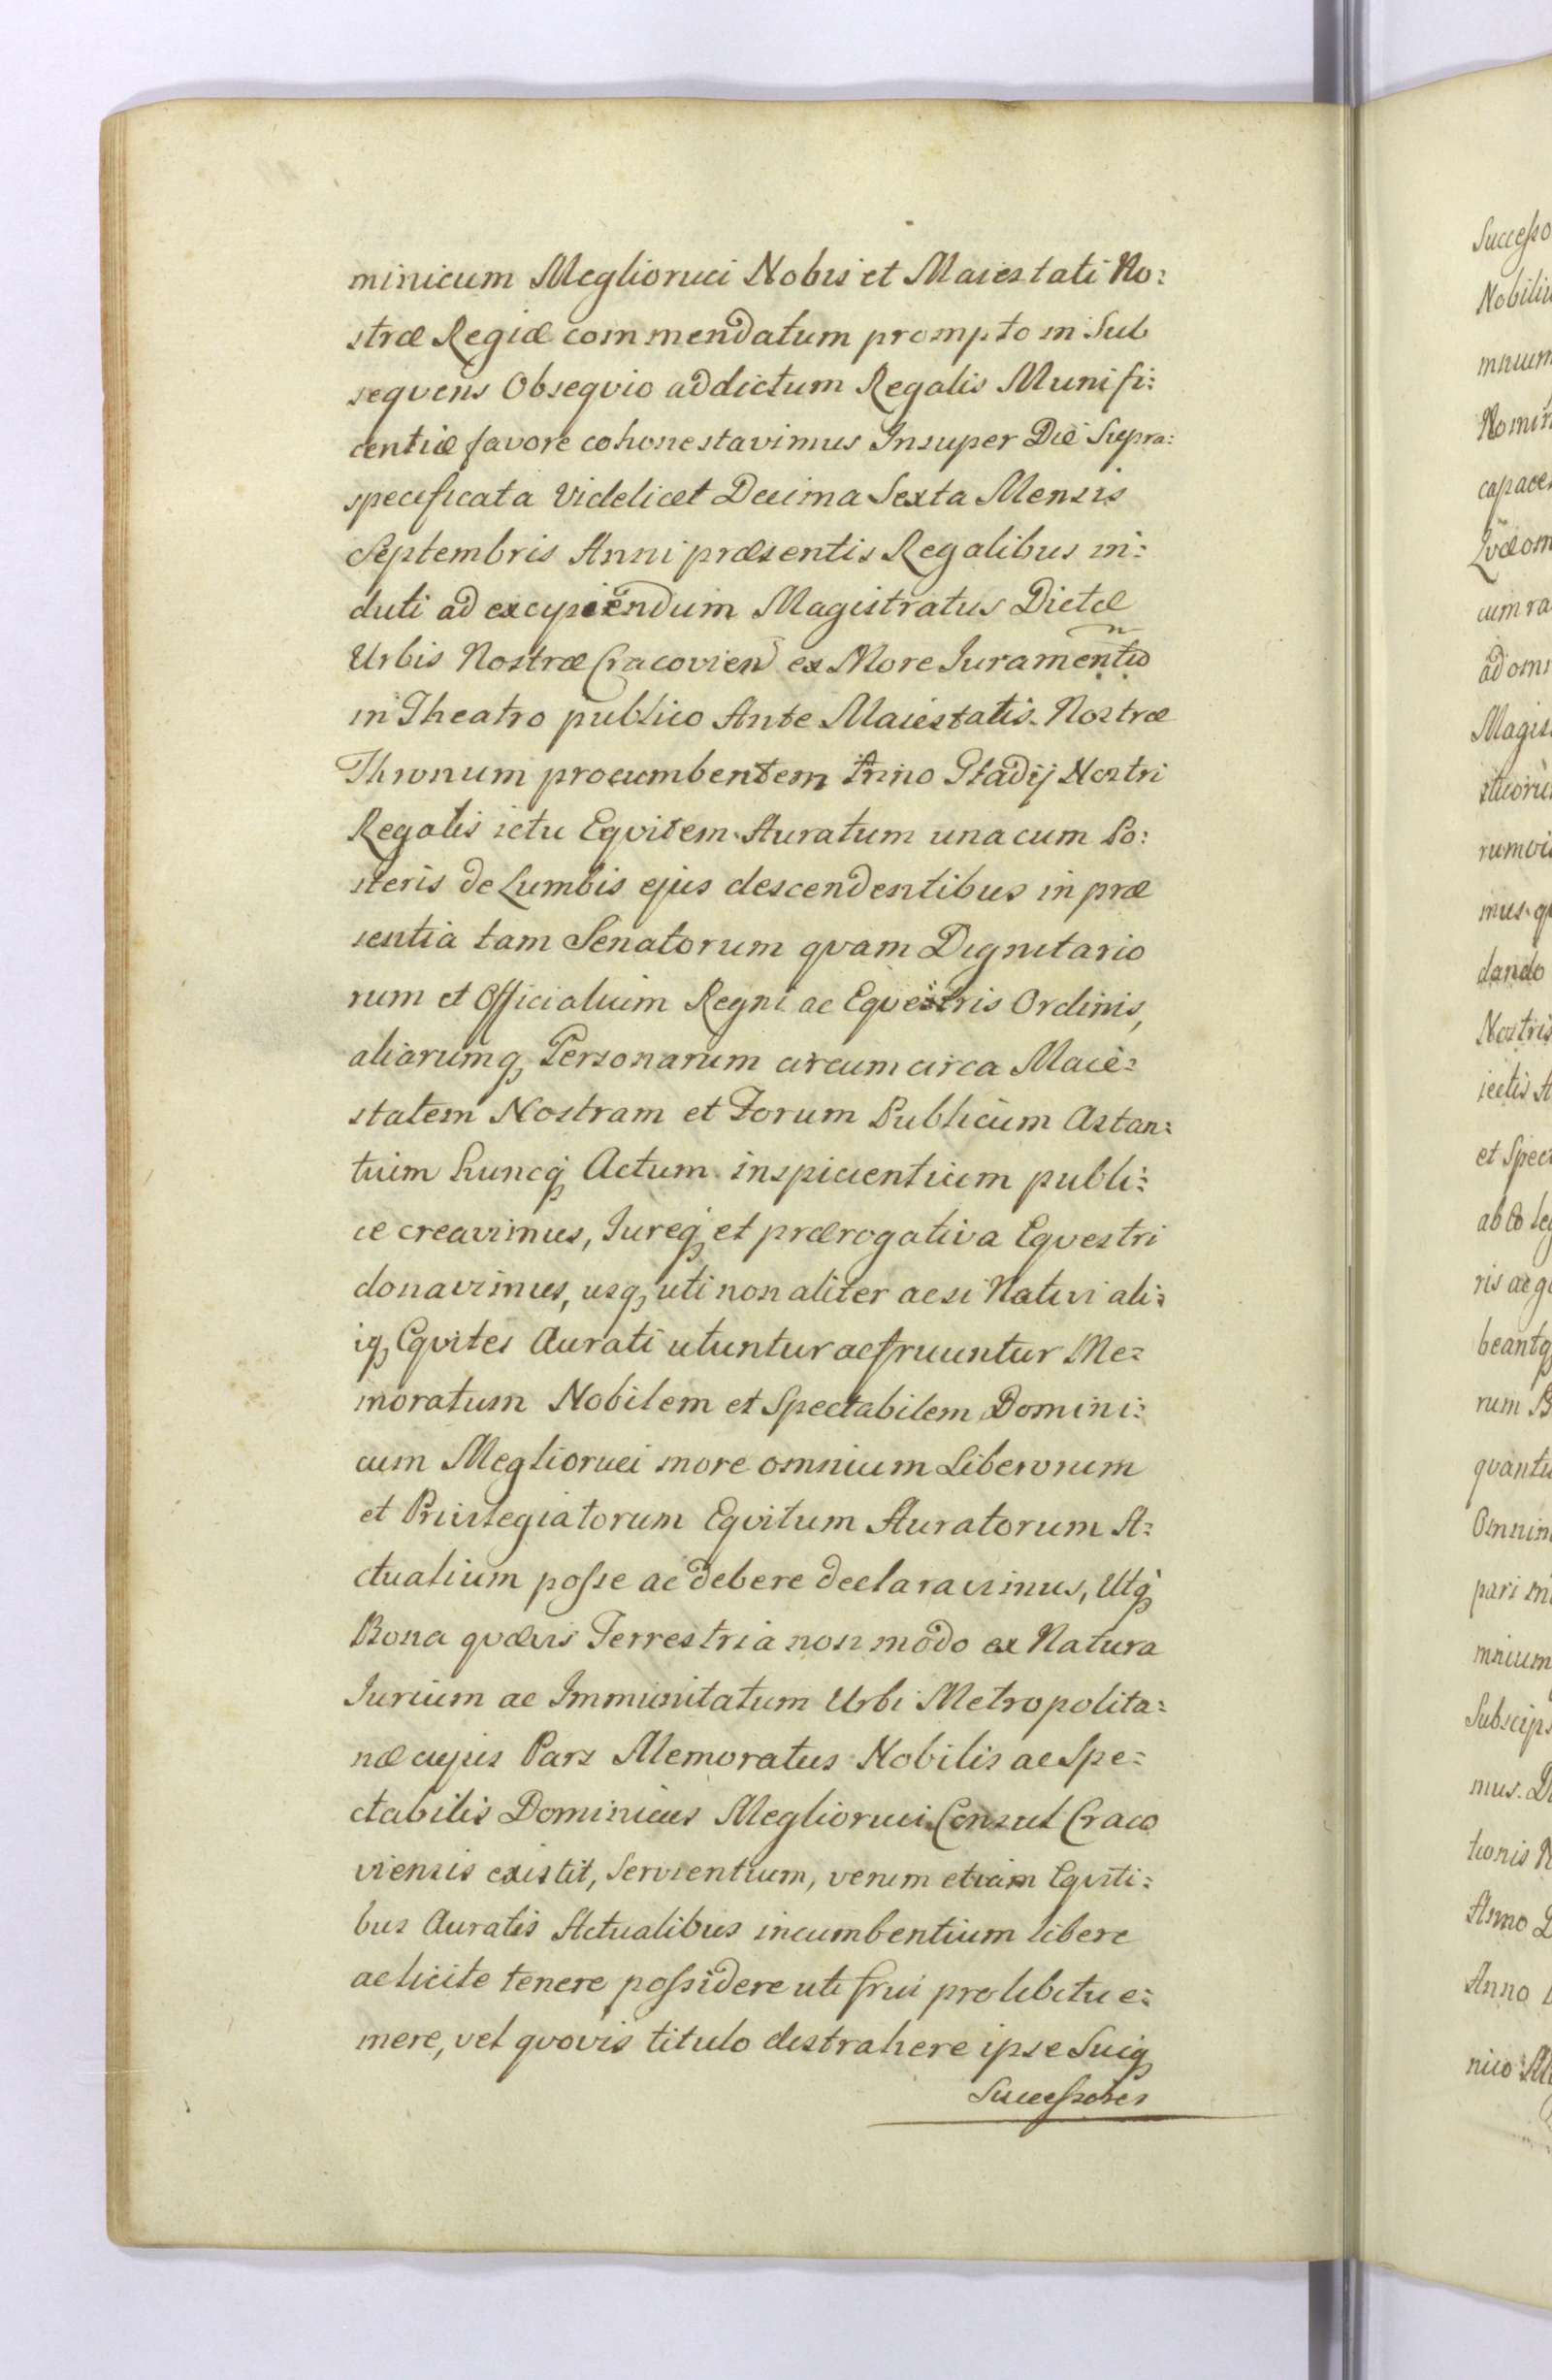 minicum Meglioruci Nobis et Maiestati No:
stræ Regiæ commendatum prompto in Sub
seqvens Obseqvio addictum Regalis Munifi:
centiæ favore cohonestavimus Insuper Die Supra:
specificata Videlicet Decima Sexta Mensis
Septembris Anni præsentis Regalibus in:
duti ad excypiendum Magistratus Dictæ
Urbis Nostræ Cracovien ex More Juramento
in Theatro publico Ante Maiestatis Nostræ
Thronum procumbentem trino Gladij Nostri
Regalis ictu Eqvitem Auratum una cum Po:
steris de Lumbis ejus descendentibus in præ
sentia tam Senatorum qvam Dignitario
rum et Officialium Regni ac Eqvestris Ordinis,
aliarumq Personarum circum circa Maie:
statem Nostram et Forum Publicum Astan:
tium huncq Actum inspicientium publi:
ce creavimus, Jureq et prærogativa Eqvestri
donavimus, usq, uti non aliter ac si Nativi ali:
iq, Eqvites Aurati utuntur ac fruuntur Me:
moratum Nobilem et Spectabilem Domini:
cum Meglioruci more omnium Liberorum
et Privilegiatorum Eqvitum Auratorum A:
ctualium posse ac debere declaravimus, Utq
Bona qvævis Terrestria non modo ex Natura
Jurium ac Immunitatum Urbi Metropolita:
næ cujus Pars Memoratus Nobilis ac Spe:
ctabilis Dominicus Meglioruci Consul Craco
viensis existit, Servientium, verum etiam Eqviti:
bus Auratis Actualibus incumbentium libere
ac licite tenere possidere uti frui pro libitu e:
mere, vel qvovis titulo distrahere ipse Suiq
Successores
Successo
Nobiliu
mnium
Nomin
capaces
Qvæ om
cum ra
ad om
Magis
sticoru
rumvi
mus q
dando
Nostris
iectis A
et Spec
ab Eo le
ris ac g
beantq
rum B
qvantu
Omnin
pari m
mnium
Subscips
mus. D
tionis R
Anno D
Anno
nico Al